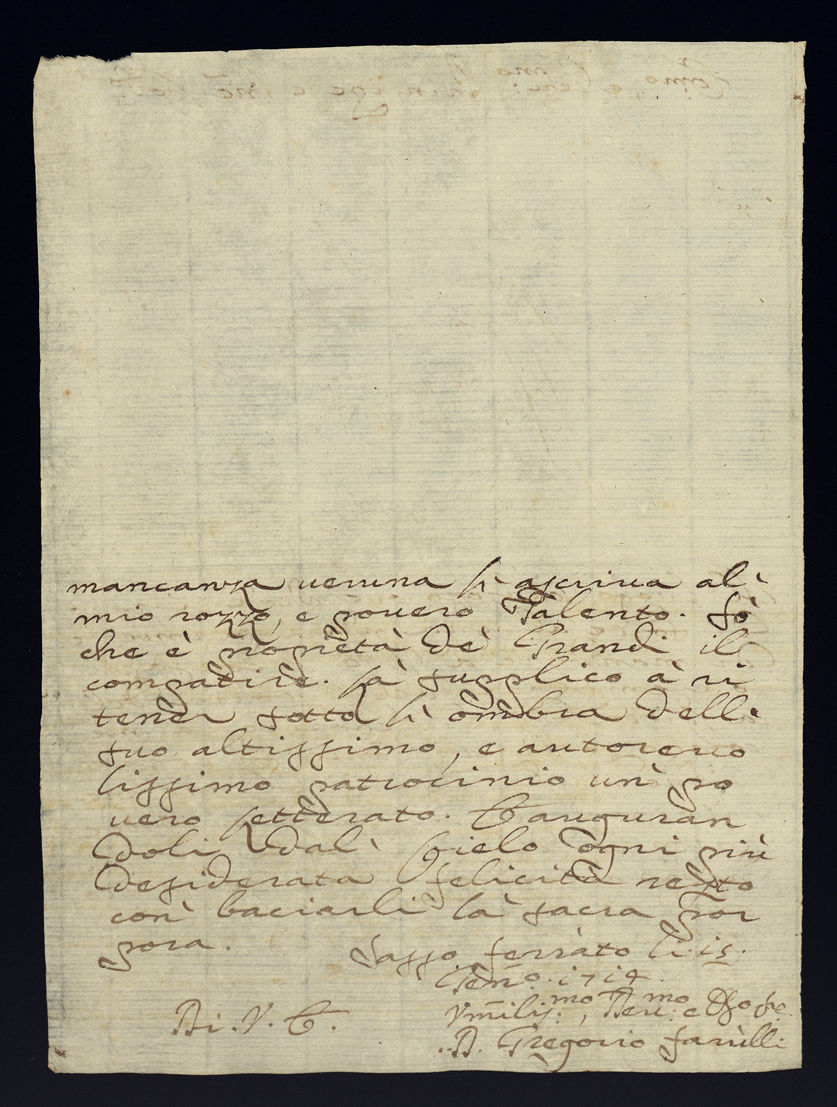 mancanza veruna si ascriva al'
mio rozzo, e povero Talento. Sò
che è propietà de' Grandi il
compatire. Là supplico à ri
tener sotto l'ombra dell'
suo altissimo, e autorevo
lissimo patrocinio un' po
vero letterato. E auguran
doli dal' Cielo ogni più
desiderata felicità resto
con' baciarli là sacra Por
pora.
Sasso ferràto li 15.
1714.
Di. V. E.
Umilis.mo, Dev.mo e
D. Gregorio farulli